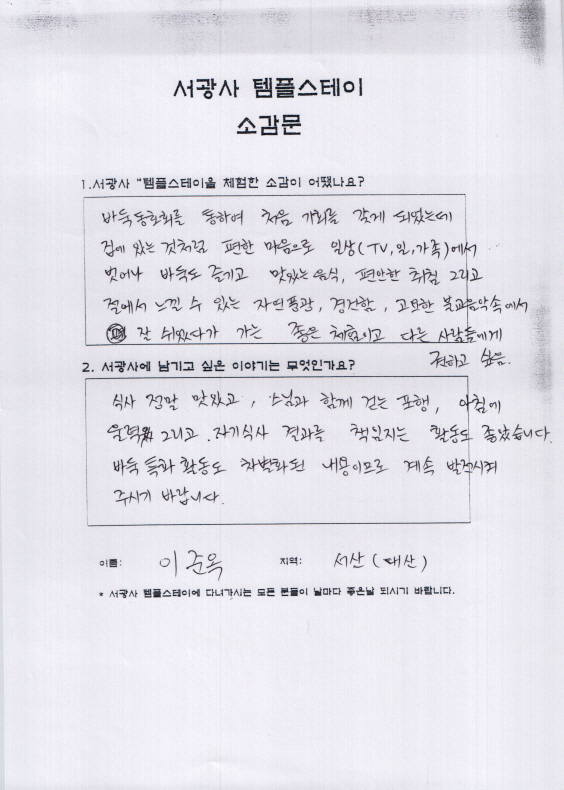 서광사 템플스테이
소감문
1.서광사 "템플스테이을 체험한 소감이 어땠나요?
바둑동호회를 통하여 처음 기회를 갖게 되었는데
집에 있는 것처럼 편한 마음으로 일상(TV,일,가족)에서
벗어나 바둑도 즐기고 맛있는 음식, 편안한 취침 그리고
절에서 느낄 수 있는 자연풍광, 경건함, 고요한 불교음악속에서
잘 쉬었다가 가는 좋은 체험이고 다른 사람들에게
전하고 싶음.
2. 서광사에 남기고 싶은 이야기는 무엇인가요?
식사 정말 맛있고, 스님과 함께 걷는 포행, 아침에
운력 그리고 자기식사 결과를 책임지는 활동도 좋았습니다.
바둑 특과활동도 차별화된 내용이므로 계속 발전시켜
주시기 바랍니다.
이름: 이준옥 지역: 서산(대산)
* 서광사 템플스테이에 다녀가시는 모든 분들이 날마다 좋은날 되시기 바랍니다.